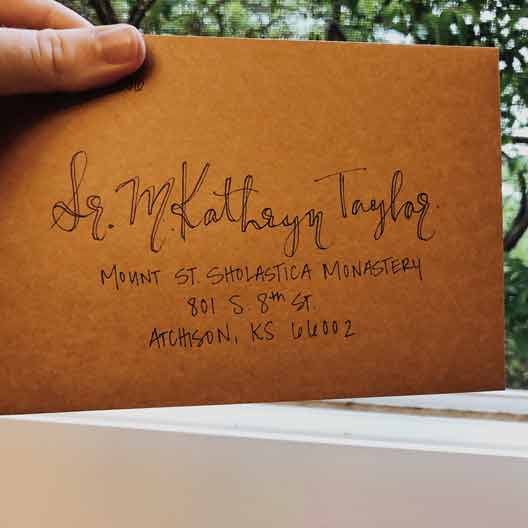 Sr. M. Kathryn Taylor
MOUNT ST. SHOLASTICA MONASTERY
801 S. 8th ST.
ATCHISON, KS 66002